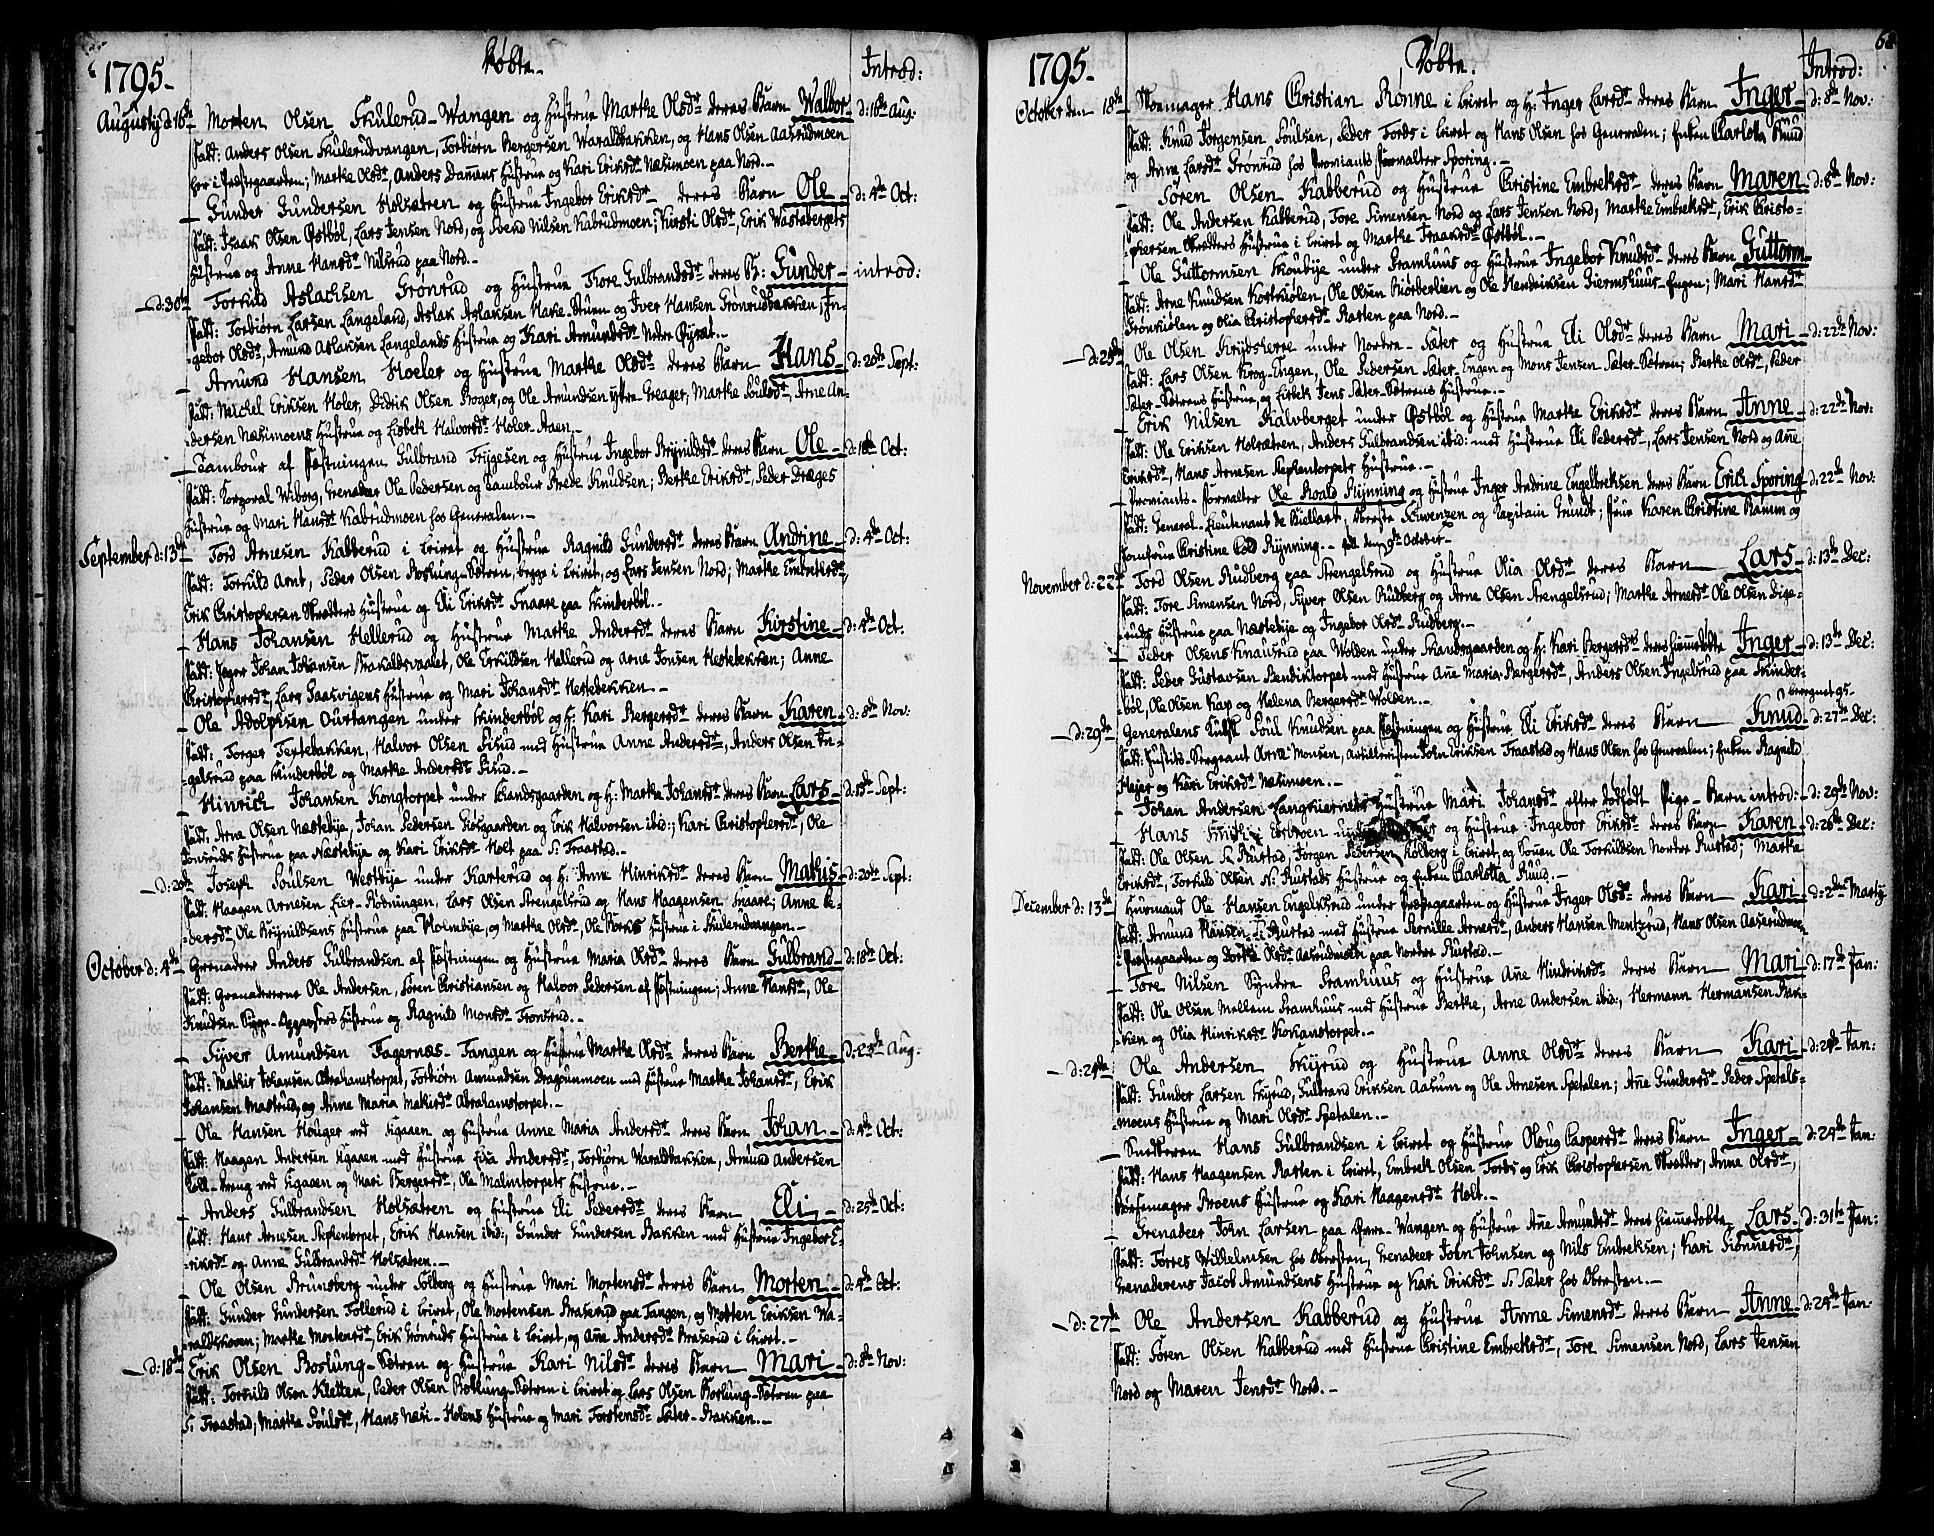 1795.
Døbte.
Introd:
Augusty d: 16de Morten Olsen Skulerud-Wangen og Hustrue Marthe Olsdr deres Barn Walbor d: 16de Aug:
Fadd: Anders Olsen Skulerudvangen, Torbiørn Bergersen Waraldbakken, og Hans Olsen Aaserudmoen
her i Præstegaarden; Marthe Olsdr, Anders Damans Hustrue og Kari Eriksdr Næsimoen paa Nord.
Gunder Gundersen Holsætren og Hustrue Ingebor Eriksdr deres Barn Ole d: 4de Oct:
Fadd: Isaak Olsen Østbøl, Lars Jensen Nord, og Svend Nilsen Kabrudmoen; Kirsti Olsdr, Erik Wastebergets
Hustrue og Anne Hansdr Nilsrud paa Nord.
d: 30te Torkild Aslachsen Grønrud og Hustrue Thore Gulbrandsdr deres B: Gunder introd:
Fadd: Torbiørn Larsen Langeland, Aslak Aslaksen Hake-Stuen og Iver Hansen Grønrudbakken; In-
gebor Olsdr, Amund Aslaksen Langelands Hustrue og Kari Amundsdr Nedre Øyset.
Amund Hansen Hoeler og Hustrue Marthe Olsdr deres Barn Hans d: 20de Sept:
Fadd: Michel Eriksen Holer, Didrik Olsen Roger, og Ole Amundsen yttre-Greager, Marthe Poulsdr, Arne An-
dersen Næsimoens Hustrue og Lisbeth Halvorsdr Holer-Aaen.
Tambour af Fæstningen Gulbrand Trygesen og Hustrue Ingebor Brynildsdr deres Barn Ole d: 18de Oct:
Fadd: Korporal Wiborg, Grenader Ole Pedersen og Tambour Brede Knudsen; Berthe Eriksdr, Peder Dræges
Hustrue og Mari Hansdr Kabrudmoen hos Generalen.
September d: 13de Tord Arnesen Kabberud i Leiret og Hustrue Ragnild Gundersdr deres Barn Andrine d: 4de Oct:
Fadd: Torkild Arnt, Peder Olsen Roslung-Sætren, begge i Leiret, og Lars Jensen Nord; Marthe Embretsdr,
Erik Christophersen Skredders Hustrue og Eli Eriksdr Snaare paa Skinderbøl.
Hans Johansen Hellerud og Hustrue Marthe Andersdr deres Barn Kirstine d: 4de Oct:
Fadd: Jæger Johan Johansen, Ole Erkildsen Hellerud og Arne Jonsen Hestebekken; Anne
Christophersdr, Lars Gaasvigens Hustrue og Mari Johansdr Hestebekken.
Ole Adolphsen Ourtangen under Skinderbøl og H: Kari Bergersdr deres Barn Karen d: 8de Nov:
Fadd: Torger Tertebakken, Halvor Olsen Sisud med Hustrue Anne Andersdr, Anders Olsen In-
gelsrud paa Skinderbøl og Marthe Andersdr Sisud.
Hinrich Johansen Kongtorpet under Skandsgaarden og H: Marthe Johansdr deres Barn Lars d: 13de Sept:
Fadd: Arne Olsen Næstebye, Johan Pedersen Skosgaarden og Erik Halvorsen ibid:; Kari Christophersdr, Ole
Tonsruds Hustrue paa Næstebye og Kari Eriksdr Holt paa S: Fraastad.
d: 20de Joseph Poulsen Westbye under Karterud og H: Anne Hinriksdr deres Barn Mathis d: 20de Sept:
Fadd: Haagen Arnesen Eier-Rødningen, Lars Olsen Strengelsrud og Hans Haagensen Snaare; Anne Pe-
dersdr, Ole Brynildsens Hustrue paa Holmbye, og Marthe Olsdr, Ole Borks Hustrue i Skulerudvangen.
October d: 4de Grenadeer Anders Gulbrandsen af Fæstningen og Hustrue Maria Olsdr deres Barn Gulbrand d: 18de Oct:
Fadd: Grenadererne Ole Andersen, Søren Christiansen og Halvor Pedersen af Fæstningen; Anne Hansdr, Ole
Knudsen Hustrue og Ragnild Monsdr Tronsrud.
Syver Amundsen Fagernæs-Tangen og Hustrue Marthe Olsdr deres Barn Berthe d: 23de Aug:
Fadd: Mathis Johansen Abrahamstorpet, Torbiørn Amundsen Dragounmoen med Hustrue Marthe Johansdr, Erik
Johansen Mastrud, og Anne Maria Mathisdr Abrahamstorpet.
Ole Hansen Houger ved Sigaaen og Hustrue Anne Maria Andersdr deres Barn Johan d: 4de Oct:
Fadd: Haagen Andersen Sigaaen med Hustrue Lisa Andersdr, Torbiørn Waraldbakken, Amund Andersen
Soll-dreng ved Sigaaen og Mari Bergersdr, Ole Malmtorpets Hustrue.
Anders Gulbrandsen Holsætren og Hustrue Eli Pedersdr deres Barn Eli d: 25de Oct:
Fadd: Hans Arnesen Stephentorpet, Erik Hansen ibid:, Gunder Gundersen Bakken med Hustrue Ingebor E-
riksdr og Anne Gulbrandsdr Holsætren.
Ole Olsen Brunsberg under Solberg og Hustrue Mari Mortensdr deres Barn Morten d: 4de Oct:
Fadd: Gunder Gundersen Follerud i Leiret, Ole Mortensen Braserud paa Tangen, og Morten Eriksen Wa-
raldskoven; Marthe Mortensdr, Erik Grønruds Hustrue i Leiret, og Ane Andersdr Braserud i Leiret.
d: 18de Erik Olsen Roslung-Sætren og Hustrue Kari Nilsdr deres Barn Mari d: 8de Nov:
Fadd: Torkild Olsen Kletten, Peder Olsen Roslung-Sætren i Leiret og Lars Olsen Roslung-Sætren paa
S: Fraastad; Marthe Poulsdr, Hans Næss-Holens Hustrue og Mari Torstensdr Sæter-Bakken.
1795.
Døbte.
Introd:
October den 18de Skoemager Hans Christian Rønne i Leiret og H: Inger Larsdr deres Barn Inger d: 8de Nov:
Fadd: Knud Jørgensen Poulsen, Peder Fords i Leiret og Hans Olsen hos Generalen; Enken Charlotta Ruud
og Anne Larsdr Grønrud hos Proviants Forvalter Sporing.
Søren Olsen Kabberud og Hustrue Christine Embreksdr deres Barn Maren d: 8de Nov:
Fadd: Ole Andersen Kabberud, Tore Simensen Nord og Lars Jensen Nord, Marthe Embreksdr, Erik Christo-
phersen Skredders Hustrue i Leiret og Marthe Traaesdr Østbøl.
Ole Guttormsen Skoubye under Framhuus og Hustrue Ingebor Knudsdr deres Barn Guttorm
Fadd: Arne Knudsen Kortkiølen, Ole Olsen Kiørberlien og Ole Hendriksen Giermshuus-Engen; Mari Hansdr
Grønkiølen og Olia Christophersdr Rasten paa Nord.
d: 25de Ole Olsen Krydsherre under Nordre-Sæter og Hustrue Eli Olsdr deres Barn Mari d: 22de Nov:
Fadd: Lars Olsen Krog-Engen, Ole Pedersen Sæter-Engen og Mons Jensen Sæter-Sætren; Berthe Olsdr, Peder
Sæter-Sætrens Hustrue, og Lisbeth Jens Sæter-Sætrens Hustrue.
Erik Nilsen Kalvberget under Østbøl og Hustrue Marthe Eriksdr deres Barn Anne d: 22de Nov:
Fadd: Ole Eriksen Holsætren, Anders Gulbrandsen ibid: med Hustrue Eli Pedersdr, Lars Jensen Nord og Ane
Eriksdr, Hans Arnesen Stephentorpets Hustrue.
Proviants-Forvalter Ole Roald Rynning og Hustrue Inger Andrine Engelbreksen deres Barn Erich Sporing d: 22de Nov:
Fadd: General-Lieutenant de Biellart, Oberste Schwenzen og Capitain Grundt; Frue Karen Christine Ramm og
Jomfrue Christine Cold Rynning. den 9de October
November d: 22de Tord Olsen Rudberg paa Strengelsrud og Hustrue Olia Olsdr deres Barn Lars d: 13de Dec:
Fadd: Tore Simensen Nord, Syver Olsen Rudberg og Arne Olsen Strengelsrud; Marthe Arnesdr Ole Olsen Dige-
ruds Hustrue paa Næstebye og Ingebor Olsdr Rudberg.
Peder Olsens Knausrud paa Wolden under Skandsgaarden og H: Kari Bergersdr deres hiemmedøbte Inger d: 13de Dec:
Fadd: Peder Gustavsen Bendiktorpet med Hustrue Ane Maria Bergersdr, Anders Olsen Ingelsrud paa Skinder-
bøl, Ole Olsen Kap og Helena Bergersdr Wolden.
d: 29de Generalens Kudsk Poul Knudsen paa Fæstningen og Hustrue Eli Eriksdr deres Barn Knud d: 27de Dec:
Fadd: Justits-Sergeant Arne Monsen, Artilleristen John Eriksen Fraastad og Hans Olsen hos Generalen; Enken Ragnild
Heier og Kari Eriksdr Næsimoen.
Johan Andersen Langkiernets Hustrue Mari Johansdr efter dødfødt Pige-Barn introd: d: 29de Nov:
Hans Smith i Ertroen under og Hustrue Ingebor Eriksdr deres Barn Karen d: 26de Dec:
Fadd: Ole Olsen S: Rustad, Jørgen Pedersen Kolberg i Leiret, og Souen Ole Torkildsen Nordre Rustad; Marthe
Eriksdr, Torkild Olsen N: Rustads Hustrue og Enken Charlotta Ruud.
December d: 13de Huusmand Ole Hansen Engelsrud under Præstegaarden og Hustrue Inger Olsdr deres Barn Kari d: 2den Marty
Fadd: Amund Hansen S: Rustad med Hustrue Pernille Arnesdr, Anders Hansen Mentzrud, Hans Olsen Aaserudmoen
i Præstegaarden og Dorthe Olsdr Aaserudmoen paa Nordre Rustad.
Tore Nilsen Syndre Framhuus og Hustrue Ane Hindriksdr deres Barn Mari d: 17de Jan:
Fadd: Ole Olsen Mellem Framhuus med Hustrue Berthe, Arne Andersen ibid:, Hermann Hermansen Bak-
ken og Olia Hinriksdr Kokanstorpet.
d: 24de Ole Andersen Skyrud og Hustrue Anne Olsdr deres Barn Kari d: 24de Jan:
Fadd: Gunder Larsen Skyrud, Gulbrand Eriksen Aasum og Ole Arnesen Spetalen; Ane Gundersdr Peder Spetals-
moens Hustrue og Mari Olsdr Spetalen.
Snedkeren Hans Gulbrandsen i Leiret og Hustrue Oloug Caspersdr deres Barn Inger d: 24de Jan:
Fadd: Hans Haagensen Rasten i Leiret, Embrek Olsen Fords og Erik Christophersen Skredder; Anne Olsdr,
Bøssemager Broens Hustrue og Kari Haagensdr Holt.
Grenadeer John Larsen paa Øvre-Wangen og Hustrue Ane Amundsdr deres hiemmedøbte Lars d: 31te Jan:
Fadd: Torres Wilhelmsen hos Obersten, Grenadeer John Johnsen og Nils Embreksen; Kari Siønnesdr,
Grenaderens Jacob Amundsens Hustrue og Kari Eriksdr S: Sæter hos Obersten.
d: 27de Ole Andersen Kabberud og Hustrue Anne Simensdr deres Barn Anne d: 24de Jan:
Fadd: Søren Olsen Kabberud med Hustrue Christine Embreksdr, Tore Simensen Nord, Lars Jensen
Nord og Maren Jensdr Nord.